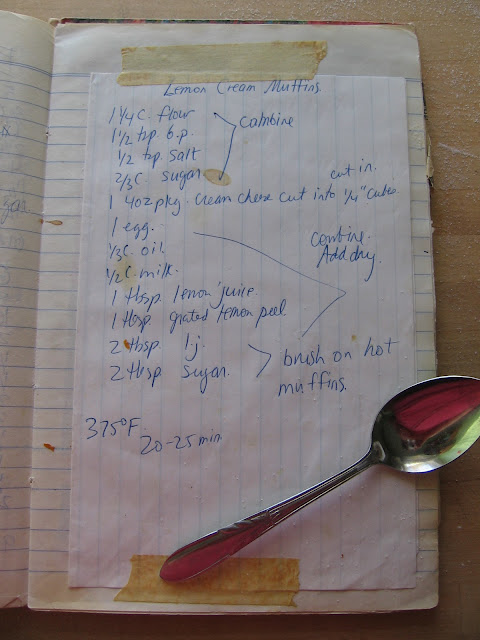 Lemon Cream Muffins
1 1/4 C. flour
1 1/2 tsp b.p.
combine
1/2 tsp. salt
2/3 C. sugar
cut in.
1 4oz pkg. cream cheese cut into 1/4" cubes
1 egg.
1/3 C. oil
combine.
Add dry.
1/2 C. milk.
1 tbsp. lemon juice.
1 tbsp grated lemon peel
2 tbsp l.j.
brush on hot
2 tbsp. sugar.
muffins.
375°F.
20-25 min